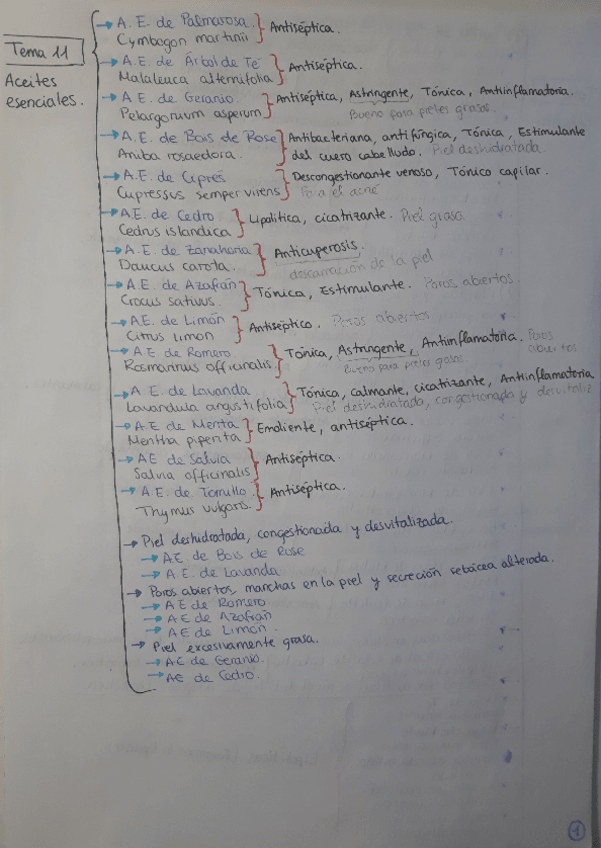 Tema 11
Aceites
esenciales.
A. E. de Palmarosa. Antiséptica.
Cymbogon martinii
A. E. de Árbol de Té Antiséptica.
Malaleuca alternifolia
A. E. de Geranio. Antiséptica, Astringente, Tónica, Antiinflamatoria.
Pelargonium asperum Bueno para pieles grasas.
A. E. de Bois de Rose Antibacteriana, antifúngica, Tónica, Estimulante
Aniba rosaedora. del cuero cabelludo. Piel deshidratada
A. E. de Ciprés Descongestionante venoso, Tónico capilar.
Cupressus sempervirens Para el acné
A.E. de Cedro Lipolítica, cicatrizante. Piel grasa
Cedrus islandica
A. E. de Zanahoria Anticuperosis.
Daucus carota. descamación de la piel
A. E. de Azafrán Tónica, Estimulante. Poros abiertos.
Crocus sativus.
A.E. de Limón Antiséptico. Poros abiertos
Citrus limon
A.E. de Romero Tónica, Astringente, Antiinflamatoria. Poros abiertos
Rosmarinus officinalis Bueno para pieles grasas.
A. E. de Lavanda Tónica, calmante, cicatrizante, Antiinflamatoria
Lavandula angustifolia Piel deshidratada, congestionada y desvitaliz
A.E. de Menta Emoliente, antiséptica.
Mentha piperita
AE de Salvia Antiséptica.
Salvia officinalis
A.E. de Tomillo Antiséptica.
Thymus vulgaris.
Piel deshidratada, congestionada y desvitalizada.
A.E. de Bois de Rose
A.E. de Lavanda
Poros abiertos, manchas en la piel y secreción sebácea alterada.
AE de Romero
AE de Azafrán
AE de Limón.
Piel excesivamente grasa.
AE de Geranio.
AE de Cedro.
1